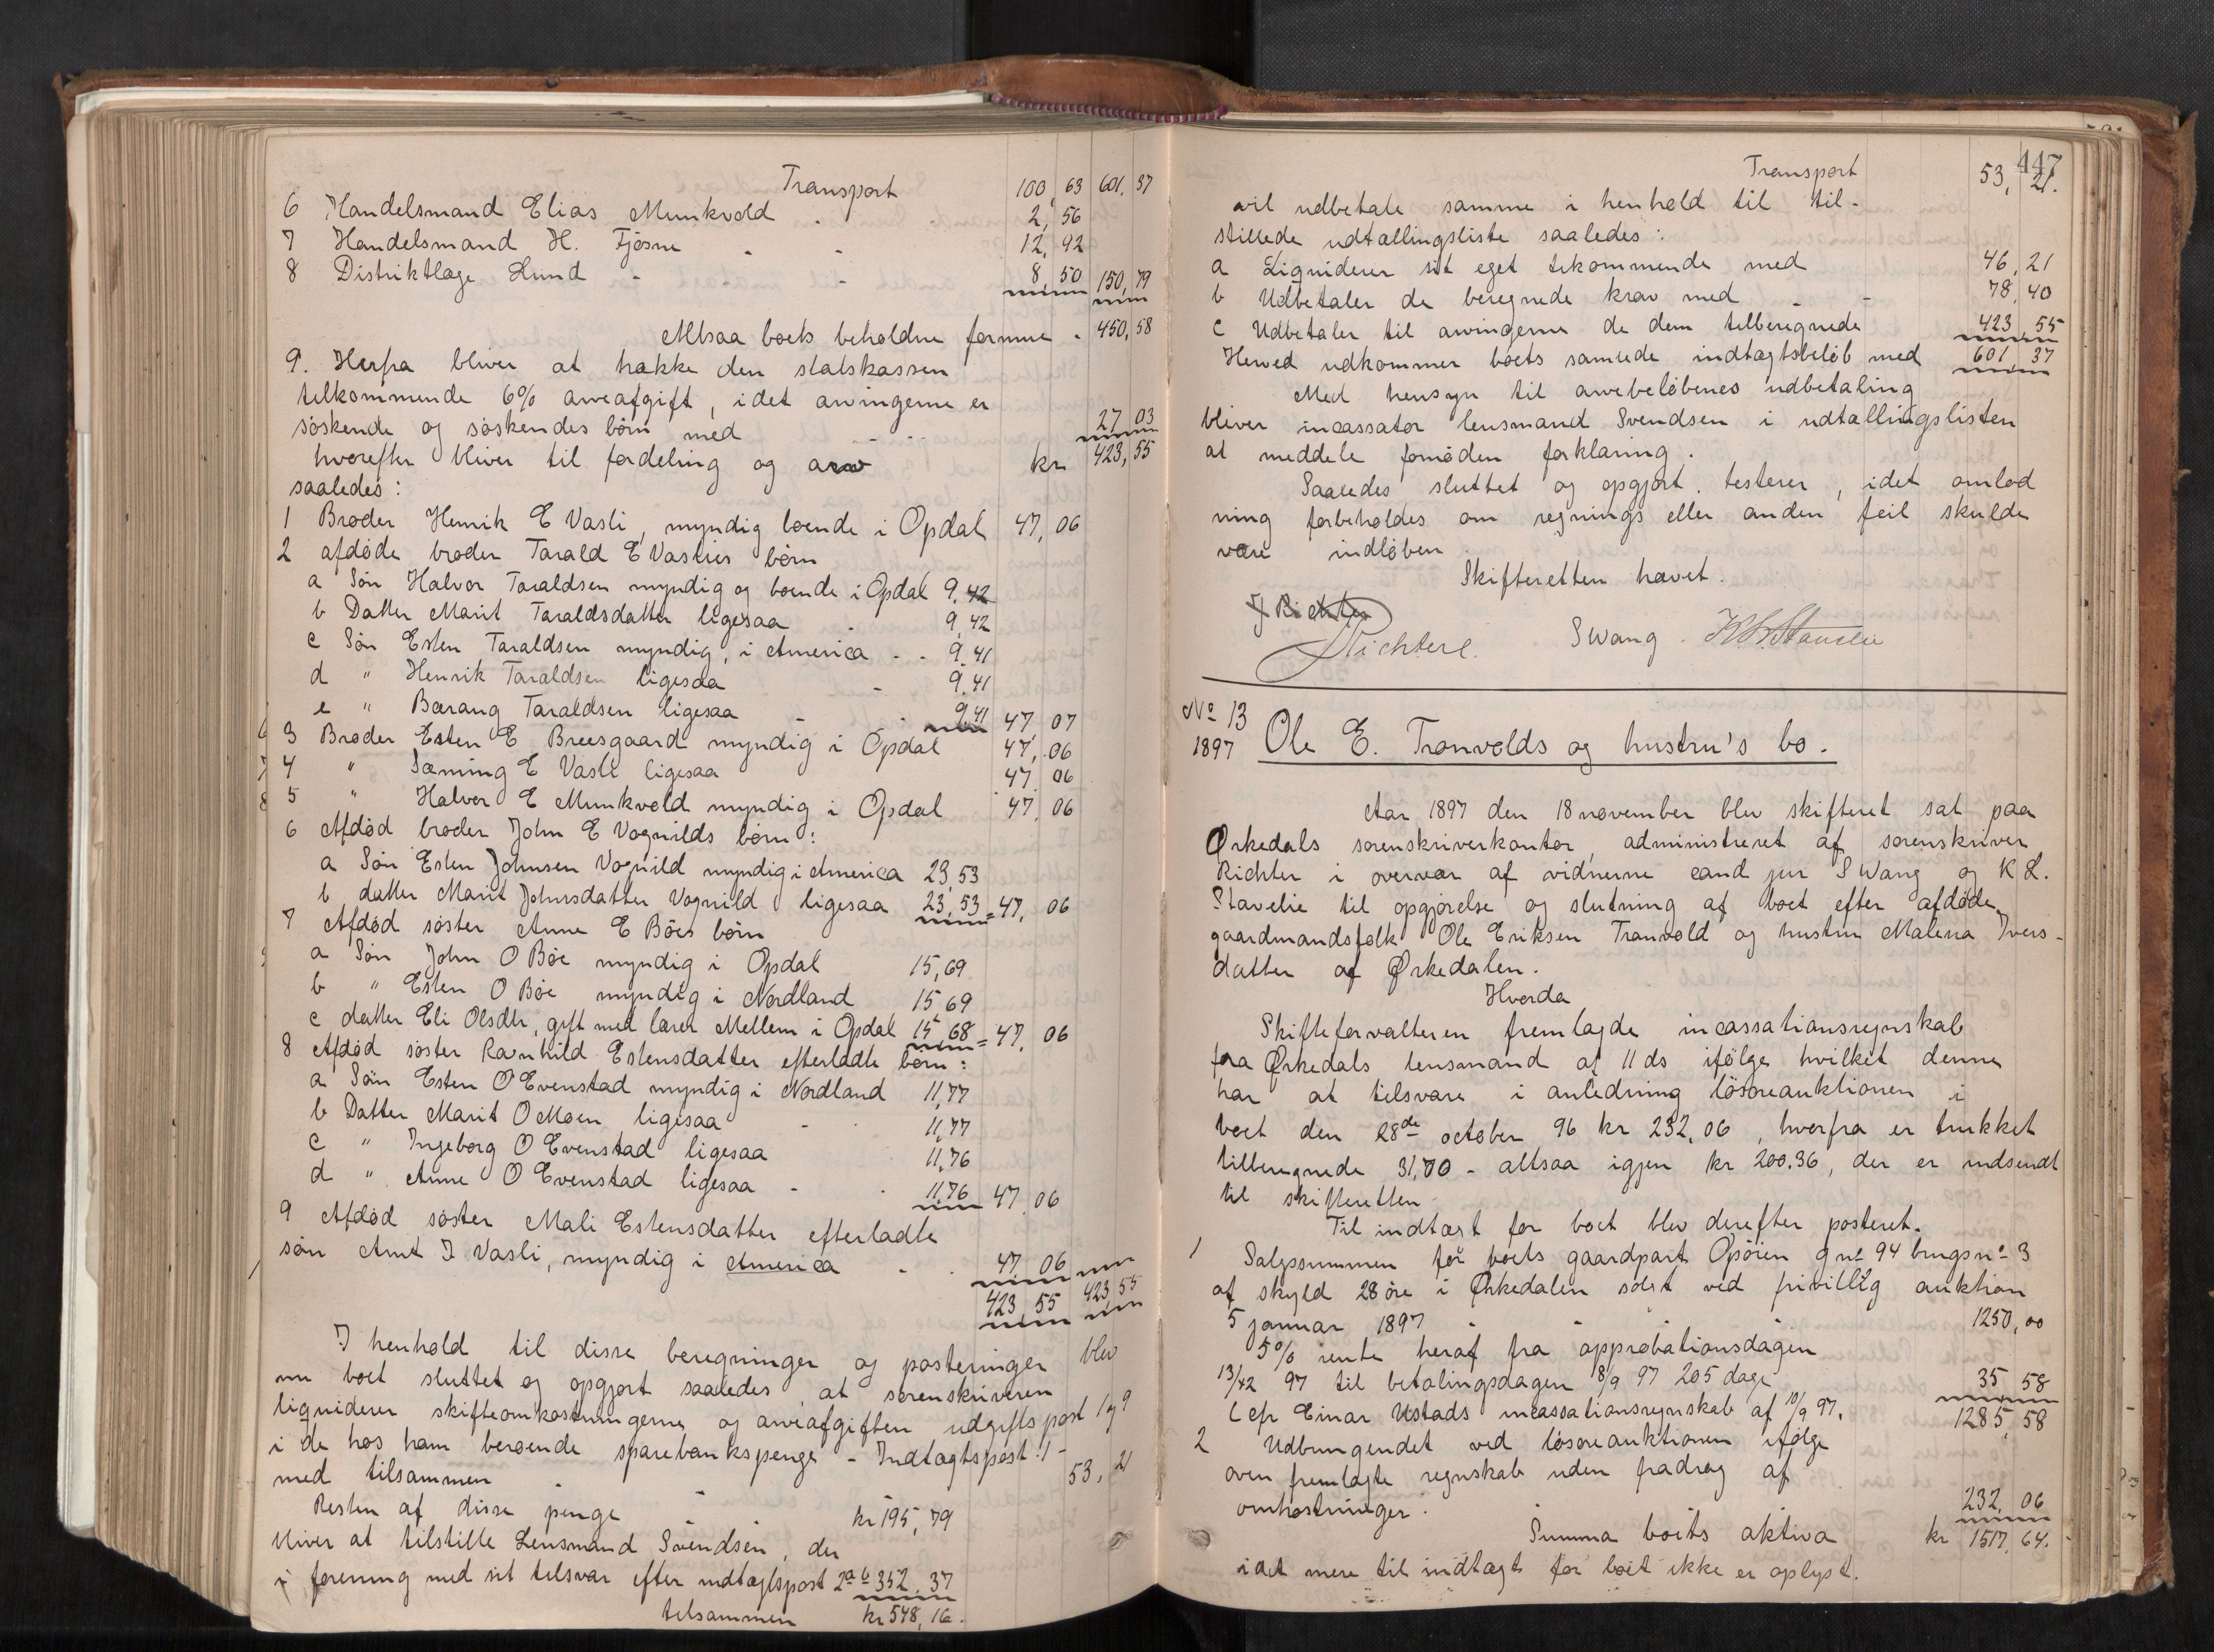 Transport 100,63 601,37
6 Handelsmand Elias Munkvold 2,56
7 Handelsmand H. Fjösne 12,92
8 Distriktlæge Lund 8,50 150,79
Altsaa boets beholdne formue 450,58
9. Herfra bliver at trække den statskassen
tilkommende 6% arveafgift, idet arvingerne er
söskende og söskendes börn med 27 03
hvorefter bliver til fordeling og arv kr 423,55
saaledes:
1 Broder Henrik E Vasli, myndig boende i Opdal 47,06
2 afdöde broder Tarald E Vaslies börn
a Sön Halvor Taraldsen myndig og boende i Opdal 9,42
b Datter Marit Taraldsdatter ligesaa 9,42
c Sön Esten Taraldsen myndig, i America 9,41
d " Henrik Taraldsen ligesaa 9,41
e " Bærang Taraldsen ligesaa 9,41 47,07
3 Broder Esten E Breesgaard myndig i Opdal 47,06
4 " Sæming E Vasli ligesaa 47,06
5 " Halvor E Munkvold myndig i Opdal 47,06
6 Afdöd broder John E Vognilds börn:
a Sön Esten Johnsen Vognild myndig i America 23,53
b datter Marit Johnsdatter Vognild ligesaa 23,53 = 47,06
7 Afdöd söster Anne E Böes börn
a Sön John O Böe myndig i Opdal 15,69
b " Esten O Böe myndig i Nordland 15,69
c datter Eli Olsdtr, gift med lærer Mellem i Opdal 15,68 = 47,06
8 Afdöd söster Ravnhild Estensdatter efterladte börn:
a Sön Esten O Evenstad myndig i Nordland 11,77
b Datter Marit O Moen ligesaa 11,77
c " Ingeborg O Evenstad ligesaa 11,76
d " Anne O Evenstad ligesaa 11,76 47,06
9 Afdöd söster Mali Estensdatter efterladte
sön Arnt J Vasli, myndig i America 47,06
423,55 423,55
I henhold til disse beregninger og posteringer blev
nu boet sluttet og opgjort saaledes, at sorenskriveren
liquiderer skifteomkostningerne og arveafgiften udgiftspost 1 og 9
i de hos ham beroende sparebankspenge - Indtægtspost 1 -
med tilsammen 53,21
Resten af disse penge kr 195,79
bliver at tilstille Lensmand Svendsen, der
i forening med sit tilsvar efter indtægtspost 2 a b 352,37
tilsammen kr 548,16.
447
Transport 53,21.
vil udbetale samme i henhold til til-
stillede udtællingsliste saaledes:
a Liquiderer sit eget tilkommende med 46,21
b Udbetaler de beregnede krav med 78,40
c Udbetaler til arvingerne de dem tilberegnede 423,55
Herved udkommer boets samlede indtægtsbelöb med 601,37
Med hensyn til arvebelöbenes udbetaling
bliver incassator lensmand Svendsen i udtællingslisten
at meddele fornöden forklaring.
Saaledes sluttet og opgjort testerer, idet omlod
ning forbeholdes om regnings eller anden feil skulde
være indlöben
Skifteretten hævet.
J Richter
Richter. S Wang. K L Stavelie
No 13
1897 Ole E. Tranvolds og hustru's bo.
Aar 1897 den 18 november blev skifteret sat paa
Ørkedals sorenskriverkontor, administreret af sorenskriver
Richter i overvær af vidnerne cand jur S Wang og K L.
Stavelie til opgjörelse og slutning af boet efter afdöde
gaardmandsfolk Ole Eriksen Tranvold og hustru Malena Ivers-
datter af Ørkedalen.
Hvorda
Skifteforvalteren fremlagde incassationsregnskab
fra Ørkedals lensmand af 11 ds ifölge hvilket denne
har at tilsvare i anledning lösöreauktionen i
boet den 28de october 96 kr 232,06, hvorfra er trukket
tilberegnede 31,70 - altsaa igjen kr 200,36, der er indsendt
til skifteretten
Til indtægt for boet blev derefter posteret.
1 Salgssummen for boets gaardpart Opöien g no 94 brugs no 3
af skyld 28 öre i Ørkedalen solgt ved frivillig auktion
5 januar 1897 1250,00
5% rente heraf fra approbationsdagen
13/42 97 til betalingsdagen 8/9 97 205 dage 35 58
(cfr Einar Ustads incassationsregnskab af 10/9 97. 1285,58
2 Udbringendet ved lösöreauktionen ifölge
oven fremlagte regnskab uden fradrag af
omkostninger. 232,06
Summa boets aktiva kr 1517,64.
idet mere til indtægt for boet ikke er oplyst.